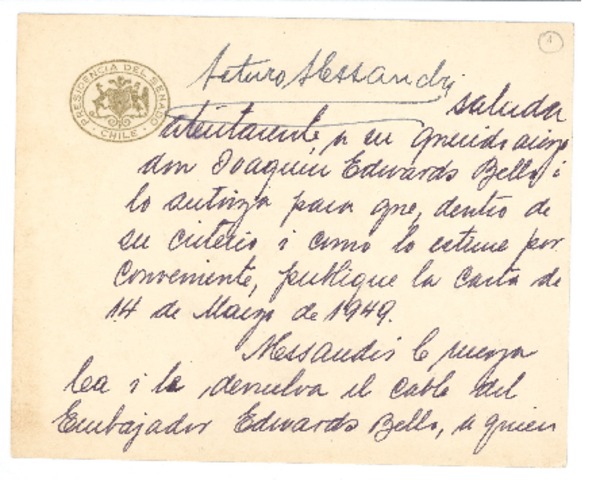 1
PRESIDENCIA DEL SENADO
· CHILE ·
Arturo Alessandri
saluda
atentamente a su querido amigo
don Joaquín Edwards Bello i
lo autoriza para que, dentro de
su criterio i como lo estime por
conveniente, publique la carta de
14 de Marzo de 1949.
Alessandri le ruega
lea i le devuelva el cable del
Embajador Edwards Bello, a quien